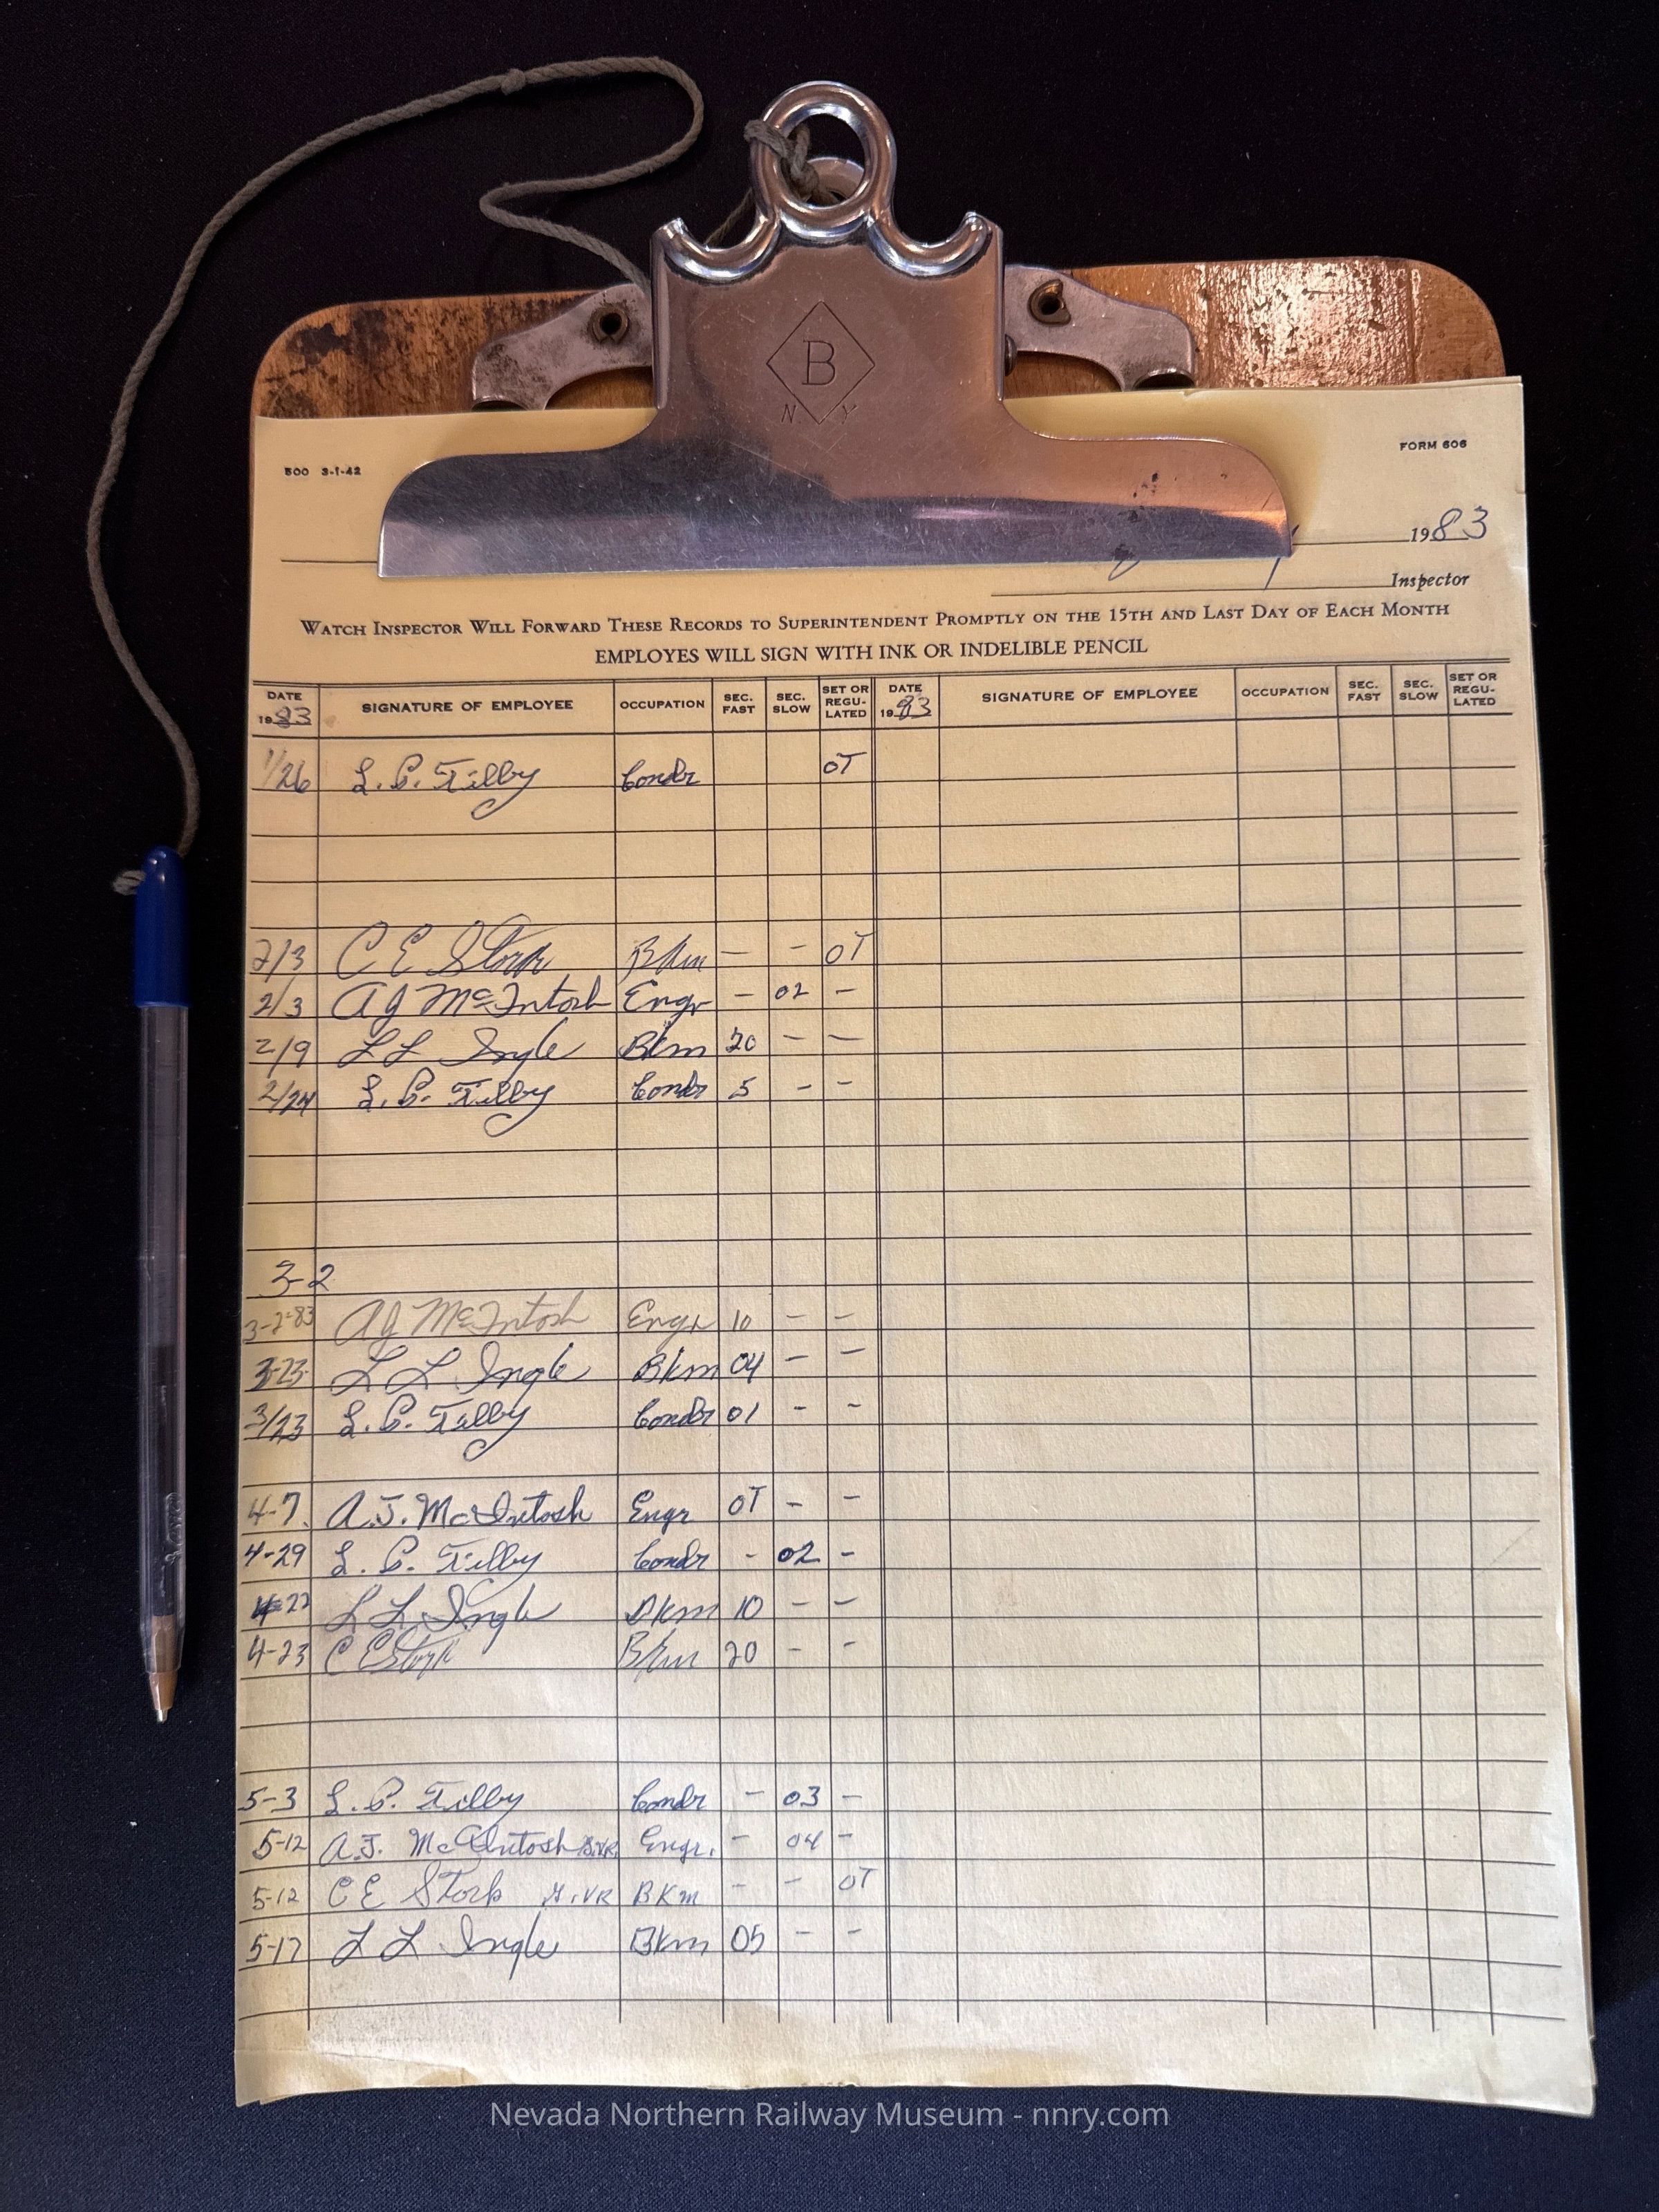 B
N Y
500 3-1-42
FORM 606
1983
Inspector
WATCH INSPECTOR WILL FORWARD THESE RECORDS TO SUPERINTENDENT PROMPTLY ON THE 15TH AND LAST DAY OF EACH MONTH
EMPLOYES WILL SIGN WITH INK OR INDELIBLE PENCIL
DATE 1983 SIGNATURE OF EMPLOYEE OCCUPATION SEC. FAST SEC. SLOW SET OR REGU-LATED DATE 1983 SIGNATURE OF EMPLOYEE OCCUPATION SEC. FAST SEC. SLOW SET OR REGU-LATED
1/26 L. C. Tilby Condr OT
2/3 C E Stork Bkm - - OT
2/3 A J McIntosh Engr - 02 -
2/9 L L Ingle Bkm 20 - -
2/24 L. C. Tilby Condr 5 - -
3-2
3-2-83 A J McIntosh Engr 10 - -
3-23 L L Ingle Bkm 04 - -
3/23 L. C. Tilby Condr 01 - -
4-7 A. J. McIntosh Engr OT - -
4-29 L. C. Tilby Condr - 02 -
4-22 L L Ingle Bkm 10 - -
4-23 C E Stork Bkm 20 - -
5-3 L. C. Tilby Condr - 03 -
5-12 A. J. McIntosh Engr. - 04 -
5-12 C E Stork BKm - - OT
5-17 L L Ingle Bkm 05 - -
Nevada Northern Railway Museum - nnry.com